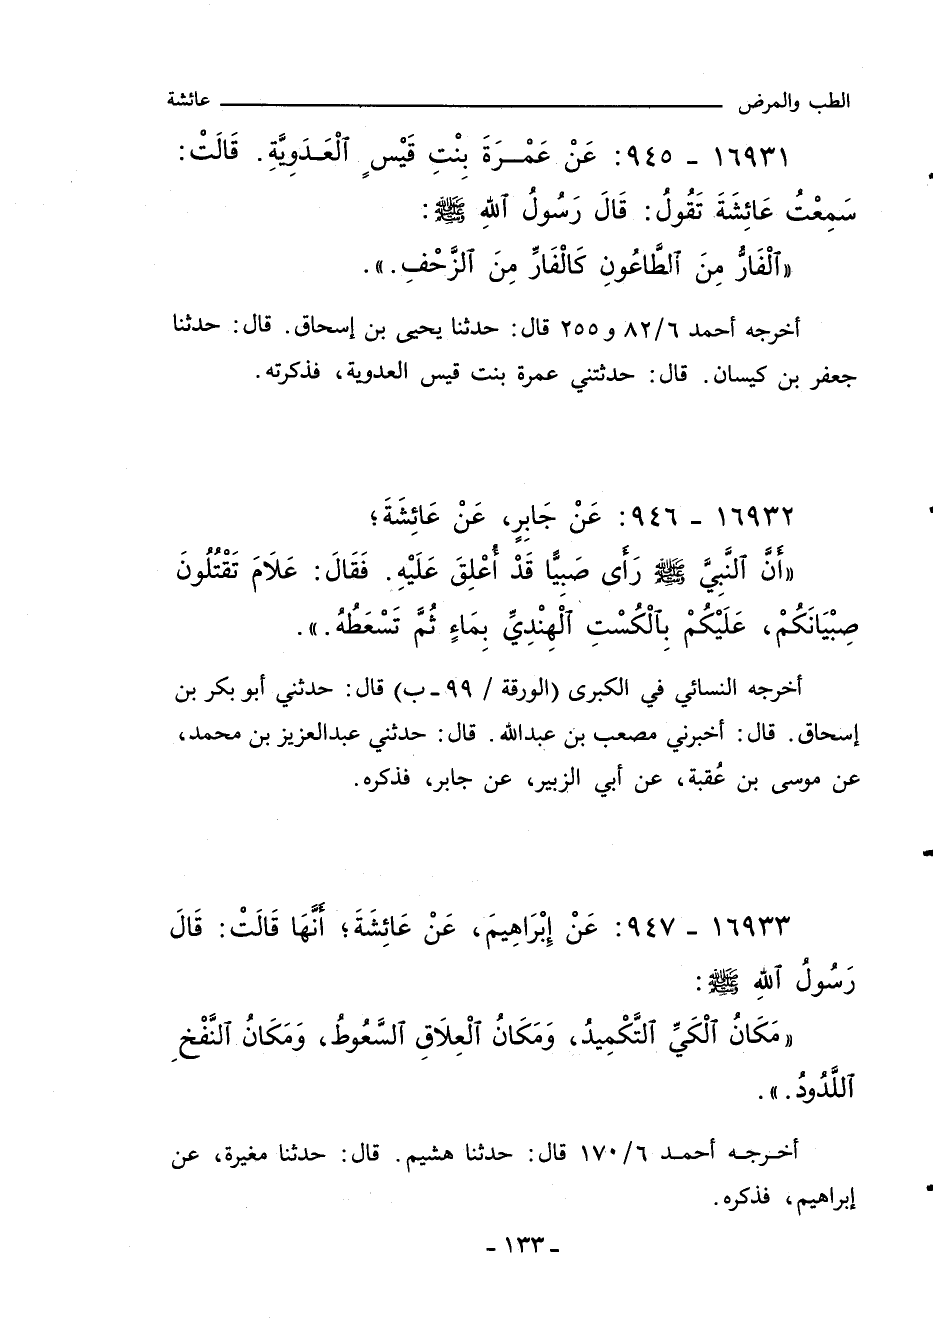 الطب والمرض عائشة
١٦٩٣١ - ٩٤٥: عَنْ عَمْـرَةَ بِنْتِ قَيْسٍ ٱلْعَـدَوِيَّةِ. قَالَتْ:
سَمِعْتُ عَائِشَةَ تَقُولُ: قَالَ رَسُولُ ٱللهِ ﷺ:
«ٱلْفَارُّ مِنَ ٱلطَّاعُونِ كَالْفَارِّ مِنَ ٱلزَّحْفِ.».
أخرجه أحمد ٨٢/٦ و ٢٥٥ قال: حدثنا يحيى بن إسحاق. قال: حدثنا
جعفر بن كيسان. قال: حدثتني عمرة بنت قيس العدوية، فذكرته.
١٦٩٣٢ - ٩٤٦: عَنْ جَابِرٍ، عَنْ عَائِشَةَ؛
«أَنَّ ٱلنَّبِيَّ ﷺ رَأَى صَبِيًّا قَدْ أُعْلِقَ عَلَيْهِ. فَقَالَ: عَلَامَ تَقْتُلُونَ
صِبْيَانَكُمْ، عَلَيْكُمْ بِٱلْكُسْتِ ٱلْهِنْدِيِّ بِمَاءٍ ثُمَّ تَسْعَطُهُ.».
أخرجه النسائي في الكبرى (الورقة / ٩٩ - ب) قال: حدثني أبو بكر بن
إسحاق. قال: أخبرني مصعب بن عبدالله. قال: حدثني عبدالعزيز بن محمد،
عن موسى بن عُقبة، عن أبي الزبير، عن جابر، فذكره.
١٦٩٣٣ - ٩٤٧: عَنْ إِبْرَاهِيمَ، عَنْ عَائِشَةَ؛ أَنَّهَا قَالَتْ: قَالَ
رَسُولُ ٱللهِ ﷺ:
«مَكَانُ ٱلْكَيِّ ٱلتَّكْمِيدُ، وَمَكَانُ ٱلْعِلَاقِ ٱلسَّعُوطُ، وَمَكَانُ ٱلنَّفْخِ
ٱللَّدُودُ.».
أخـرجـه أحمـد ١٧٠/٦ قال: حدثنا هشيم. قال: حدثنا مغيرة، عن
إبراهيم، فذكره.
- ١٣٣ -